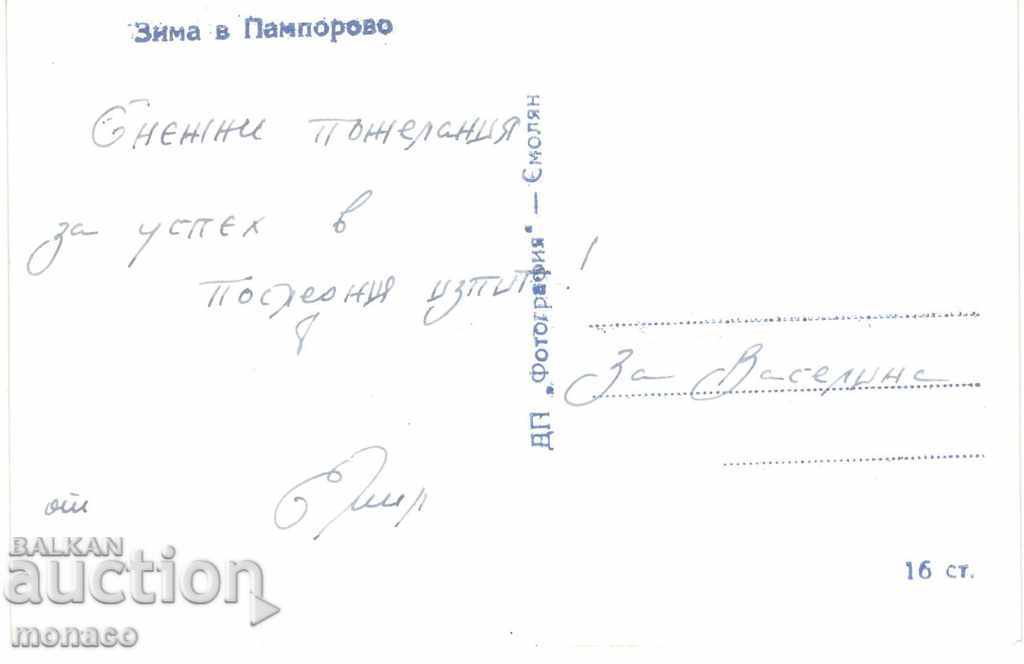 Зима в Пампорово
Снежни пожелания
за успех в
последния изпит!
от Емил
ДП „Фотография" — Смолян
За Васелина
16 ст.
BALKAN
auction
monaco